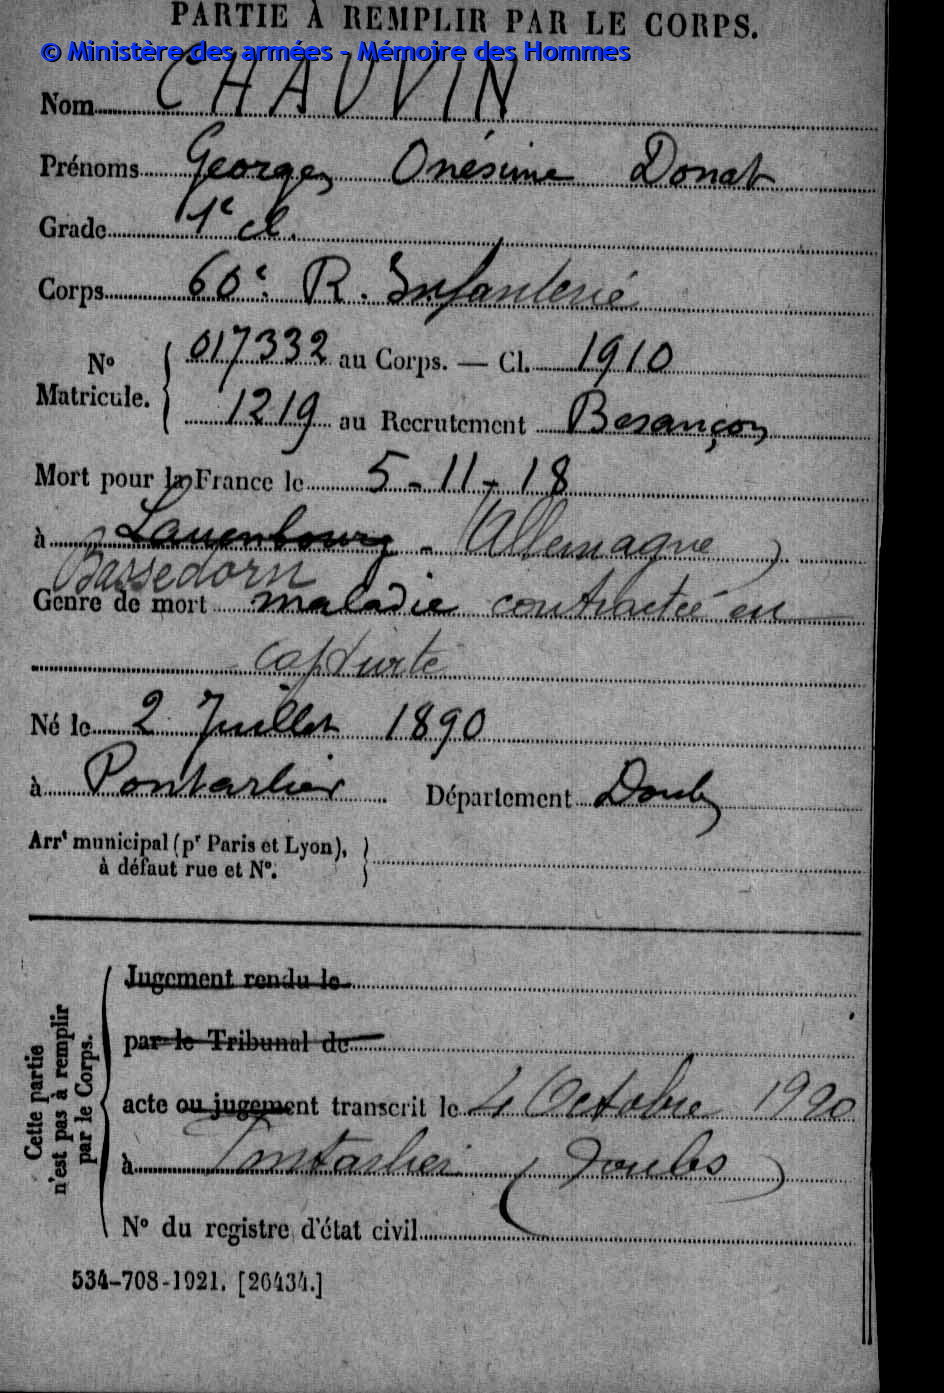 PARTIE À REMPLIR PAR LE CORPS.
© Ministère des armées - Mémoire des Hommes
Nom CHAUVIN
Prénoms Georges Onésime Donat
Grade 1e cl.
Corps 60e R. Infanterie
No Matricule. 017332 au Corps. — Cl. 1910
1219 au Recrutement Besançon
Mort pour la France le 5-11-18
à Lauenbourg - (Allemagne)
Bassedorn
Genre de mort maladie contractée en
captivité
Né le 2 Juillet 1890
à Pontarlier Département Doubs
Arrt municipal (pr Paris et Lyon),
à défaut rue et No.
Cette partie
n'est pas à remplir
par le Corps.
Jugement rendu le
par le Tribunal de
acte ou jugement transcrit le 4 Octobre 1920
à Pontarlier (Doubs)
No du registre d'état civil
534-708-1921. [26434.]